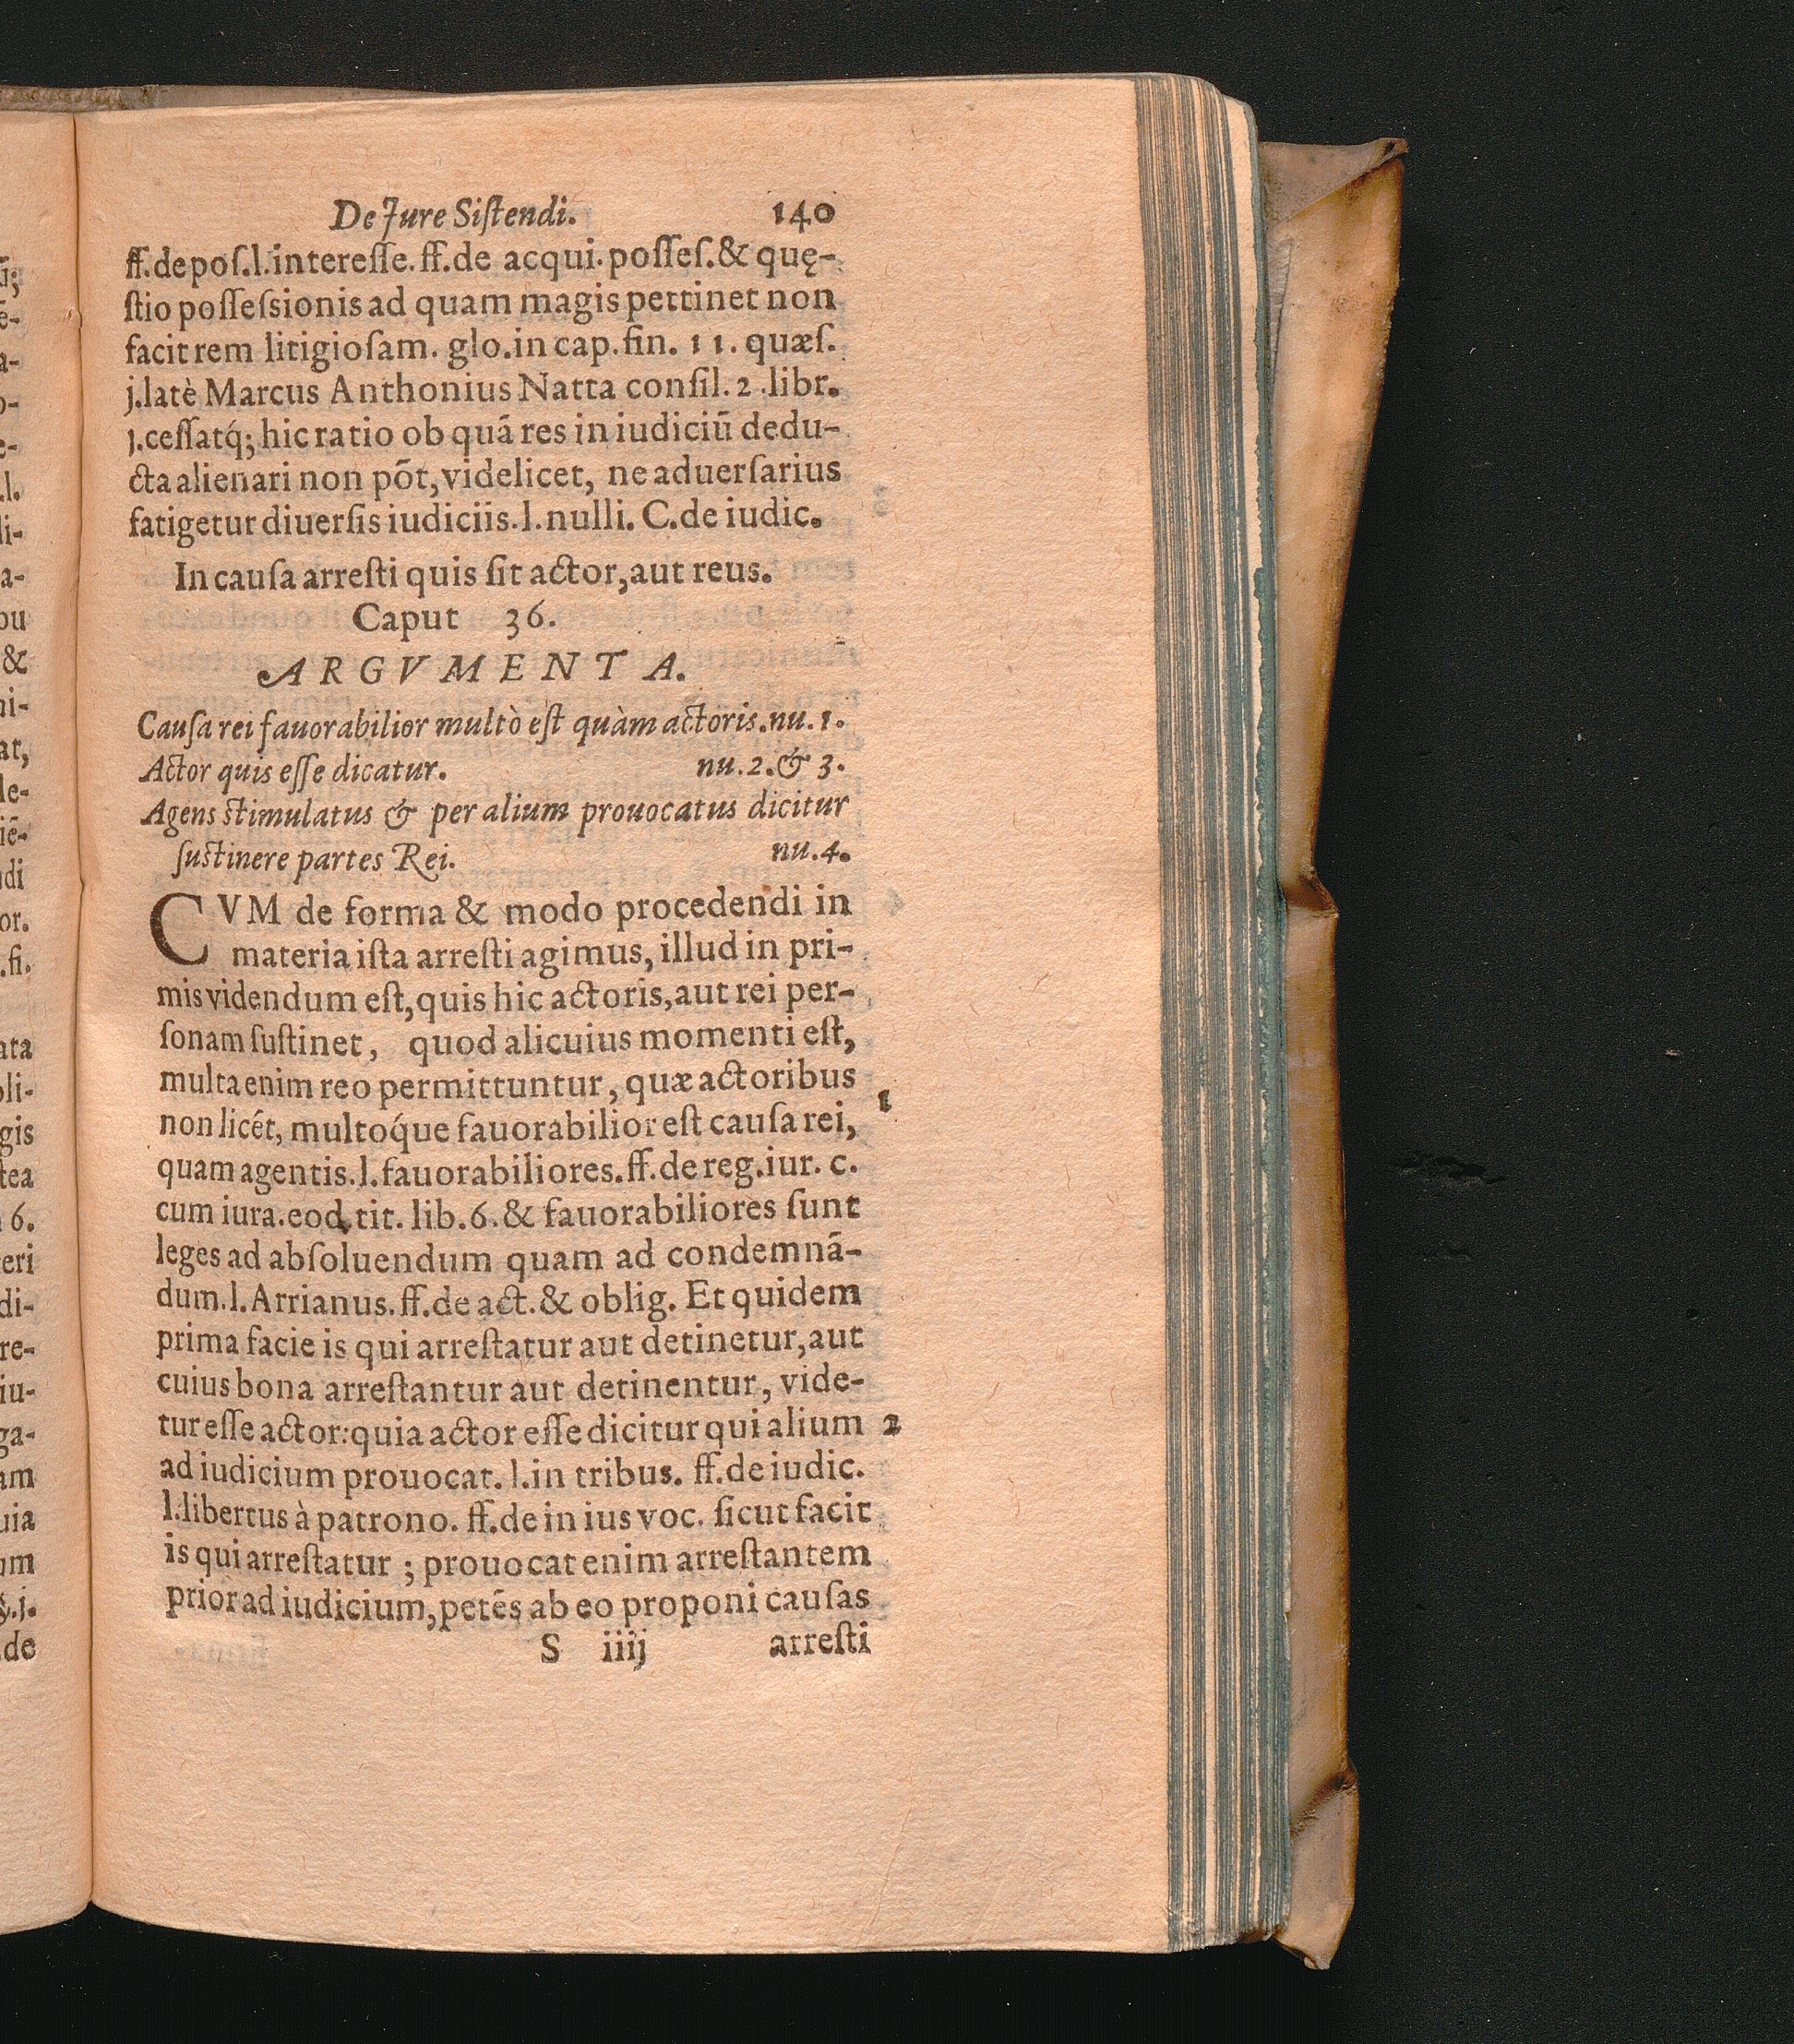 De Jure Siſtendi. 140
ff. de poſ. l. intereſſe. ff. de acqui. poſſeſ. & quę-
ſtio poſſeſsionis ad quam magis pettinet non
facit rem litigioſam. glo. in cap. fin. 11. quæſ.
j. latè Marcus Anthonius Natta conſil. 2. libr.
j. ceſſatq́; hic ratio ob quã res in iudiciũ dedu-
cta alienari non põt, videlicet, ne aduerſarius
fatigetur diuerſis iudiciis. l. nulli. C. de iudic.
In cauſa arreſti quis ſit actor, aut reus.
Caput 36.
ARGVMENTA.
Cauſa rei fauorabilior multò eſt quàm actoris. nu. 1.
Actor quis eſſe dicatur. nu. 2. & 3.
Agens ſtimulatus & per alium prouocatus dicitur
ſuſtinere partes Rei. nu. 4.
CVM de forma & modo procedendi in
materia iſta arreſti agimus, illud in pri-
mis videndum eſt, quis hic actoris, aut rei per-
ſonam ſuſtinet, quod alicuius momenti eſt,
multa enim reo permittuntur, quæ actoribus
non licét, multoq́ue fauorabilior eſt cauſa rei, 1
quam agentis. l. fauorabiliores. ff. de reg. iur. c.
cum iura. eod. tit. lib. 6. & fauorabiliores ſunt
leges ad abſoluendum quam ad condemnã-
dum. l. Arrianus. ff. de act. & oblig. Et quidem
prima facie is qui arreſtatur aut detinetur, aut
cuius bona arreſtantur aut detinentur, vide-
tur eſſe actor: quia actor eſſe dicitur qui alium 2
ad iudicium prouocat. l. in tribus. ff. de iudic.
l. libertus à patrono. ff. de in ius voc. ſicut facit
is qui arreſtatur ; prouocat enim arreſtantem
prior ad iudicium, petẽs ab eo proponi cauſas
S iiij arreſti